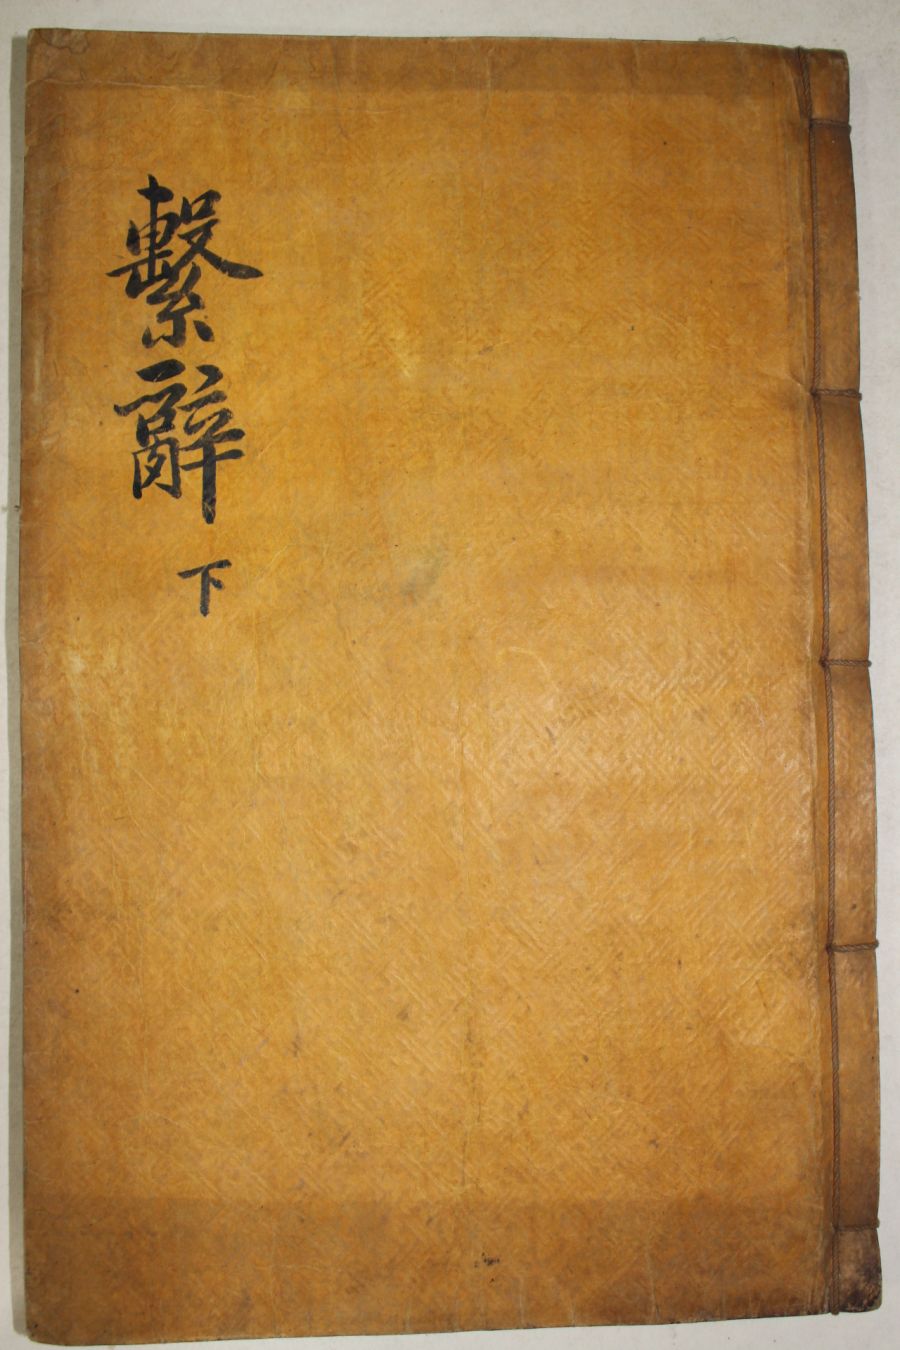 繫辭下